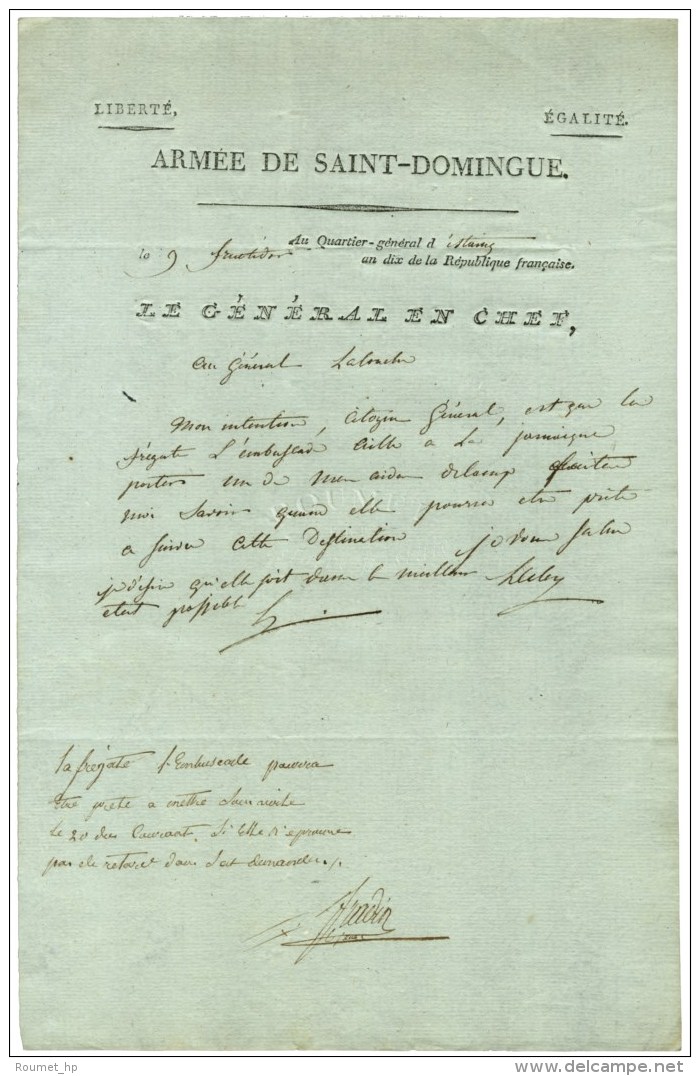 LIBERTÉ,
ÉGALITÉ.
ARMÉE DE SAINT-DOMINGUE.
Au Quartier-général d'
le 9 fructidor an dix de la République française.
LE GÉNÉRAL EN CHEF,
au général Latouche
Mon intention, Citoyen Général, est que la
frégate L'embuscade aille a La jamaique
porter un de mes aides de camp faites
moi savoir quand elle pourra etre prête
a suivre cette Destination je vous salue
je désire qu'elle soit dans le meilleur
etat possible
la frégate l'Embuscade pourra
être prete a mettre sous voile
le 20 du Courant, si Elle n'eprouve
pas de retard dans Ses demandes./.
delcampe.net
Roumet_hp